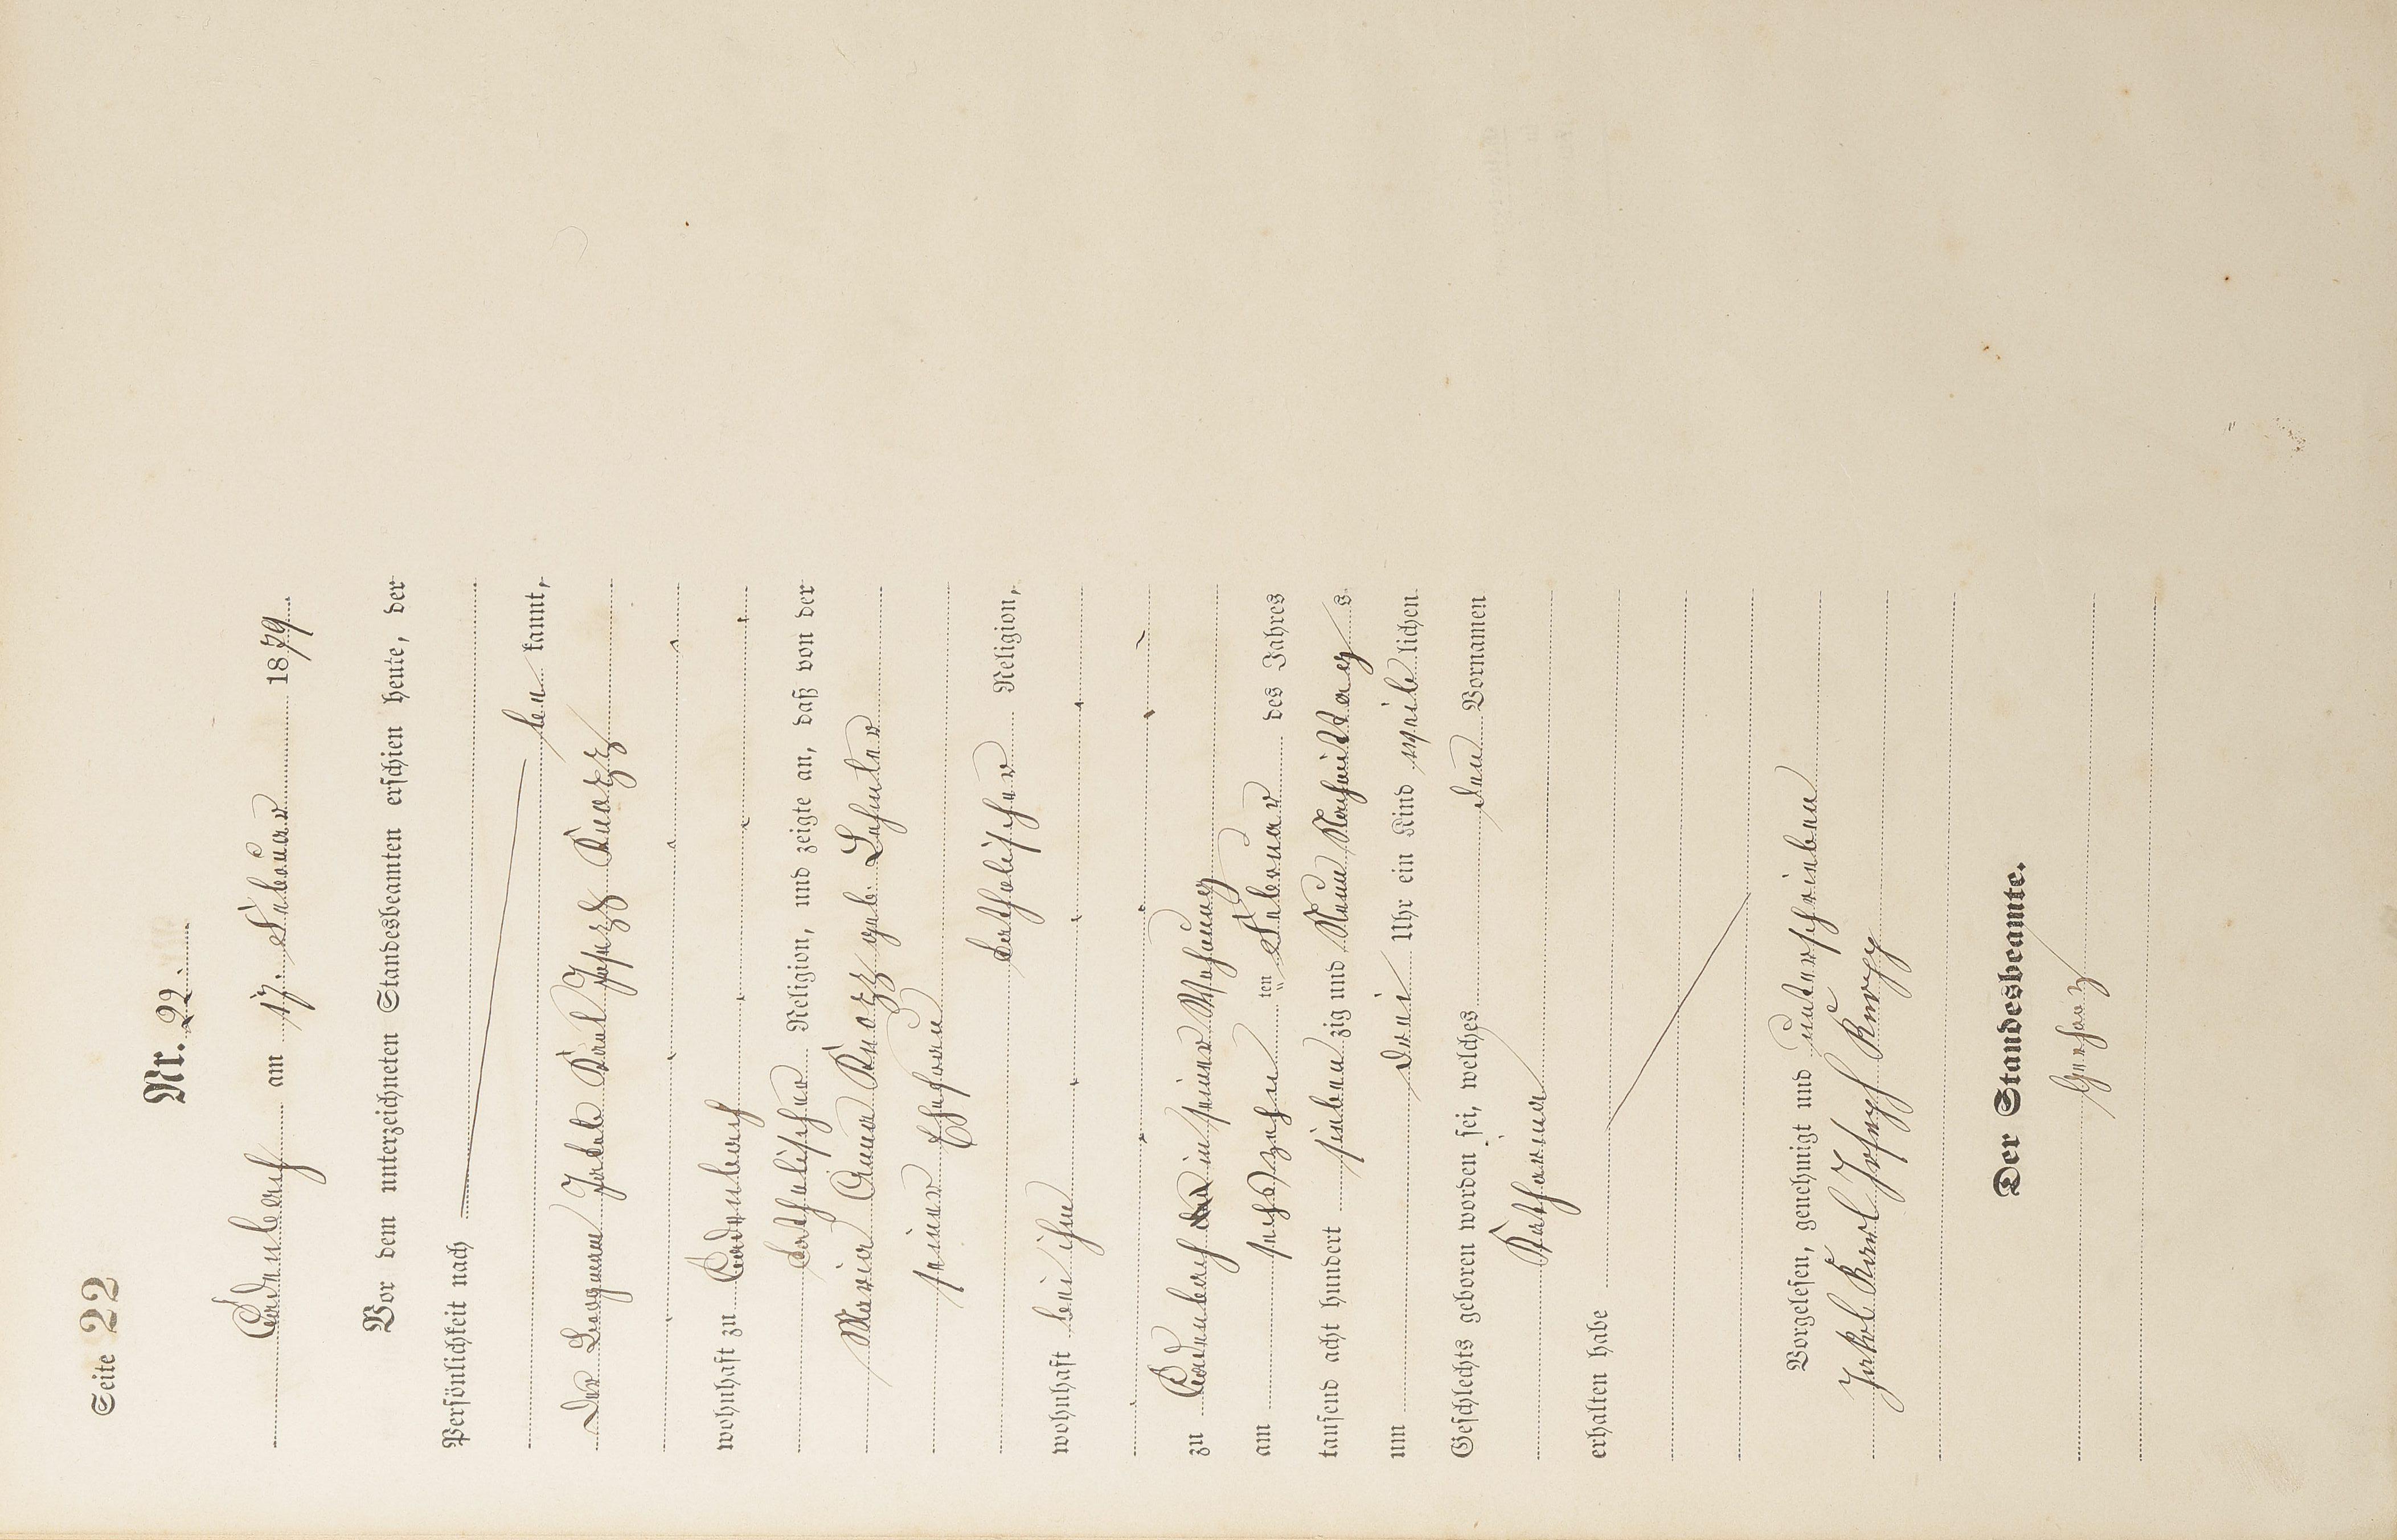 Seite 22
Nr. 22.
Cadenbach am 17. Februar 1879.
Vor dem unterzeichneten Standesbeamten erschien heute, der
Persönlichkeit nach
be kannt,
Der Jakob Karl Joseph Knopp
wohnhaft zu Cadenbach
katholischer Religion, und zeigte an, daß von der
Maria Anna Knopp geb.
seiner Ehefrau
katholischer Religion,
wohnhaft bei ihm
zu Cadenbach in seiner Wohnung
am sechszehn ten Februar des Jahres
tausend acht hundert sieben zig und Neun Nachmittags
um drei Uhr ein Kind weiblichen
Geschlechts geboren worden sei, welches den Vornamen
Katharina
erhalten habe
Vorgelesen, genehmigt und unterschrieben
Jakob Karl Joseph Knopp
Der Standesbeamte.